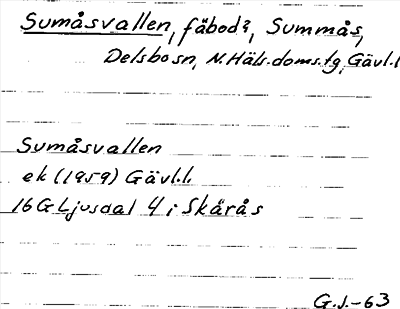 Sumåsvallen, fäbod?, Summås,
Delsbosn, N.Häls.doms.tg, Gävl.l
Sumåsvallen
ek (1959) Gävl.l.
16G Ljusdal 4 i Skärås
G.J.-63